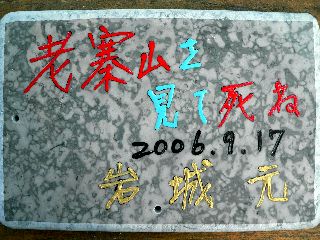 老寨山を
見て死ね
2006.9.17
岩城元